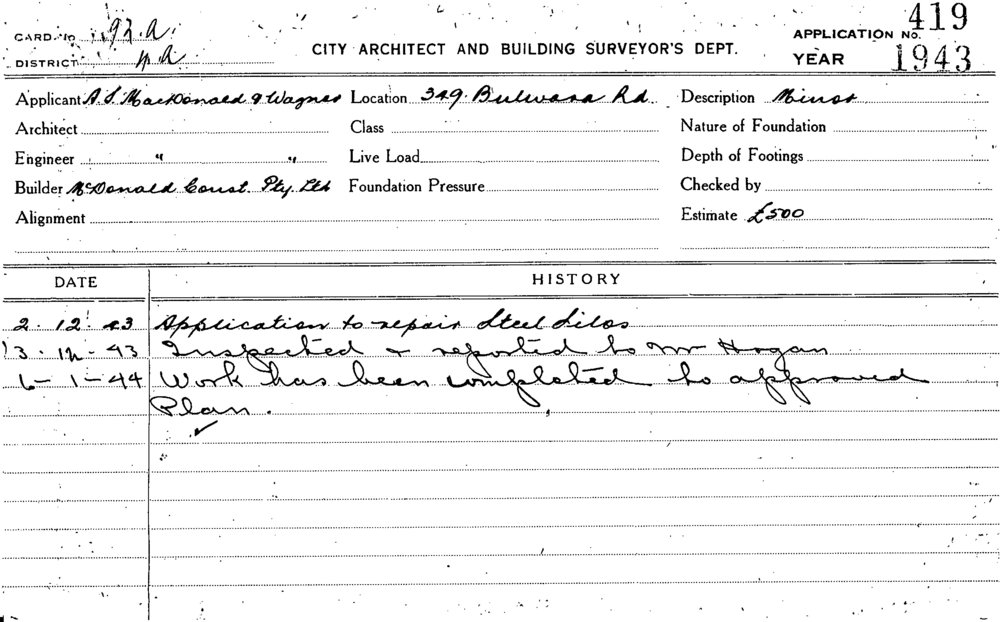 CARD No 93.A. APPLICATION No. 419
DISTRICT CITY ARCHITECT AND BUILDING SURVEYOR'S DEPT. YEAR 1943
Applicant A.S. MacDonald & Wagner Location 349. Bulwara Rd. Description Minor
Architect Class Nature of Foundation
Engineer " " Live Load Depth of Footings
Builder McDonald Const. Pty. Ltd Foundation Pressure Checked by
Alignment Estimate £500
DATE HISTORY
2.12.43 Application to repair Steel Silos
13-12-43 Inspected & reported to Mr Hogan
6-1-44 Work has been completed to approved
Plan.